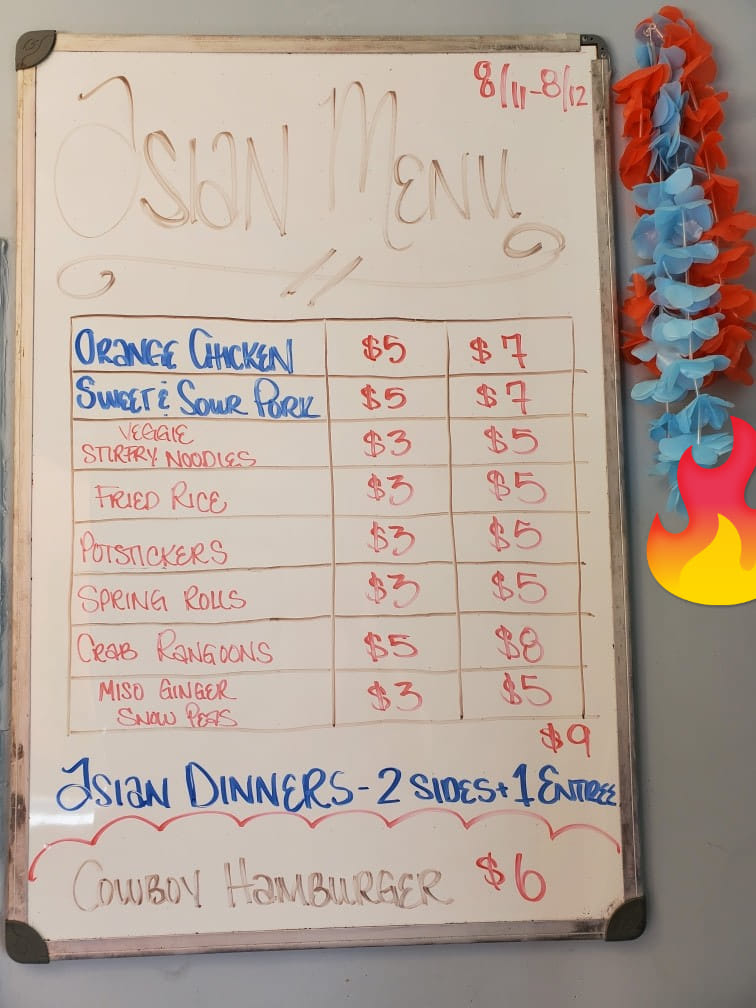 8/11-8/12
Asian Menu
Orange Chicken $5 $7
Sweet & Sour Pork $5 $7
Veggie
Stirfry Noodles $3 $5
Fried Rice $3 $5
Potstickers $3 $5
Spring Rolls $3 $5
Crab Rangoons $5 $8
Miso Ginger
Snow Peas $3 $5
$9
Asian Dinners - 2 sides + 1 Entree
Cowboy Hamburger $6